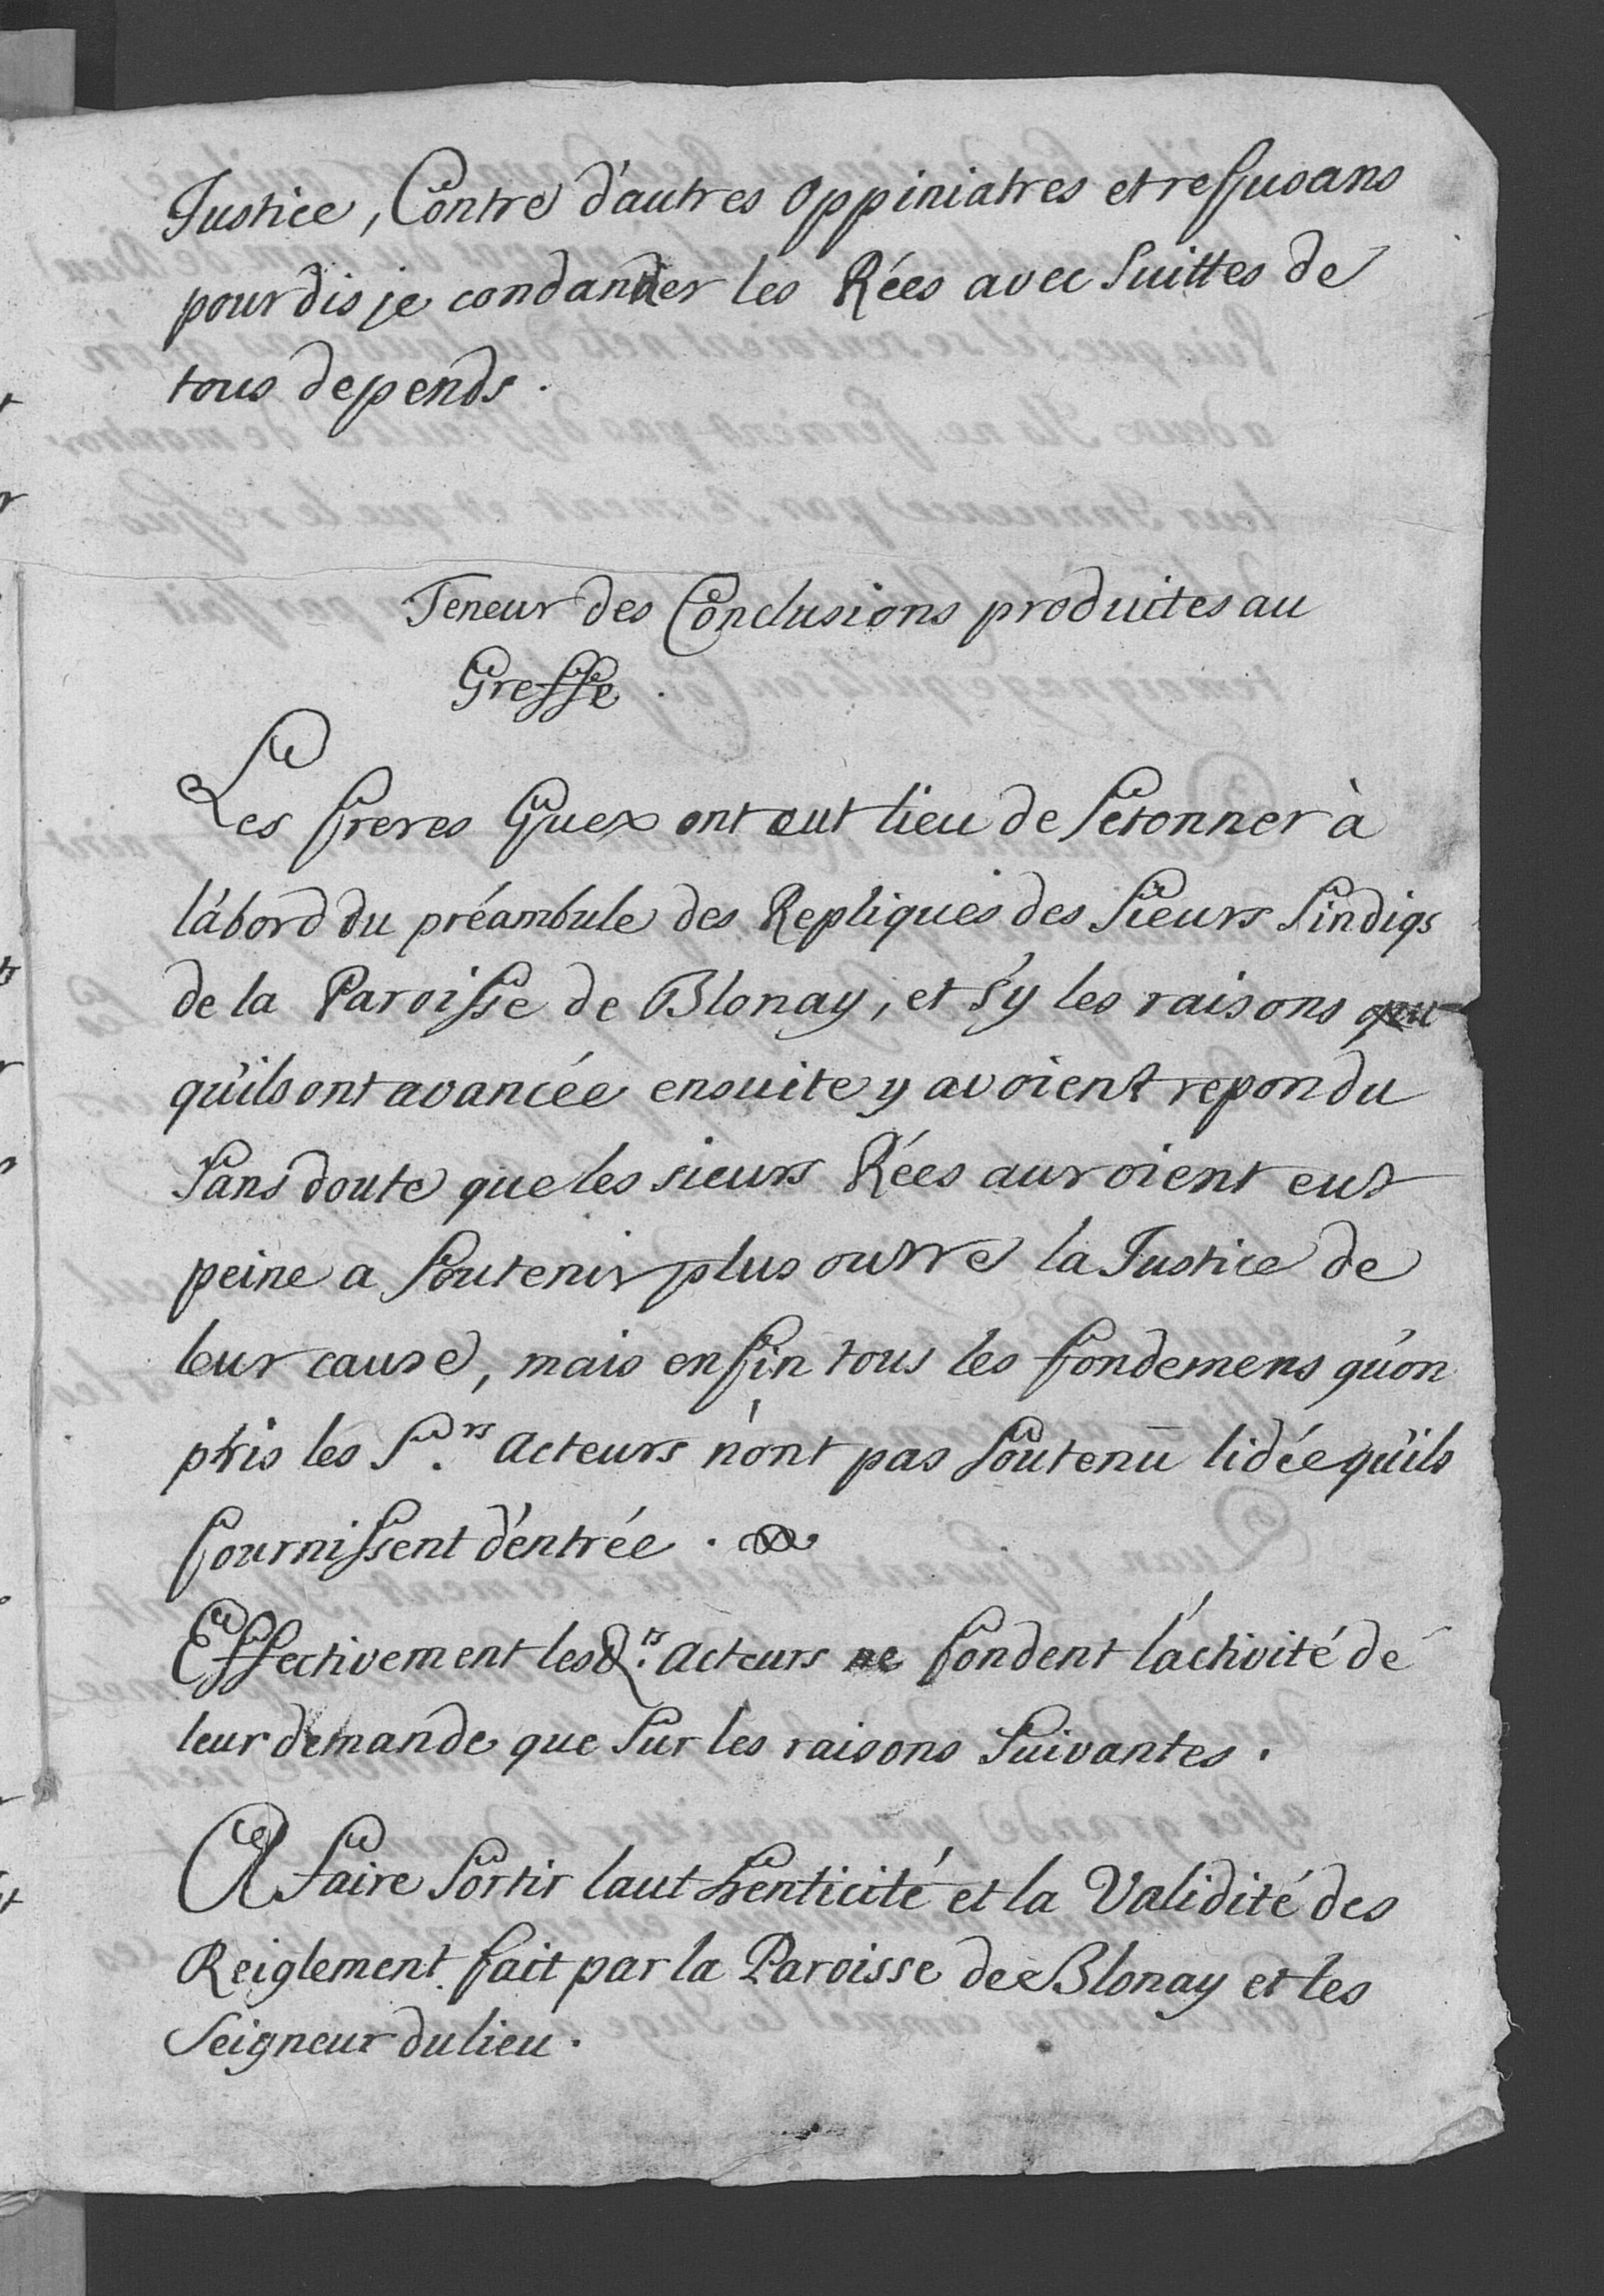 Justice, Contre d'autres Oppiniatres et reffusans
pour dis je condander les Rées avec Suittes de
tous depends.
Teneur des Conclusions produites au
Greffe.
Les freres Guex ont eut lieu de Sétonner à
l'abord du préambule des Repliques des Sieurs Sindiqs
de la Paroisse de Blonay, et S'y les raisons
qu'ils ont avancée ensuite y avoient repondu
Sans doute que les sieurs Rées auroient eut
peine a Soutenir plus outre la Justice de
leur cause, mais enfin tous les fondemens qu'on
pris les S.rs Acteurs n'ont pas Soutenu lidée qu'ils
fournissent d'entrée.
Effectivement les S.rs Acteurs ne fondent l'activité de
leur demande que Sur les raisons Suivantes.
A faire Sortir lauthenticité et la Validité des
Reiglement fait par la Paroisse de Blonay et les
Seigneur du lieu.